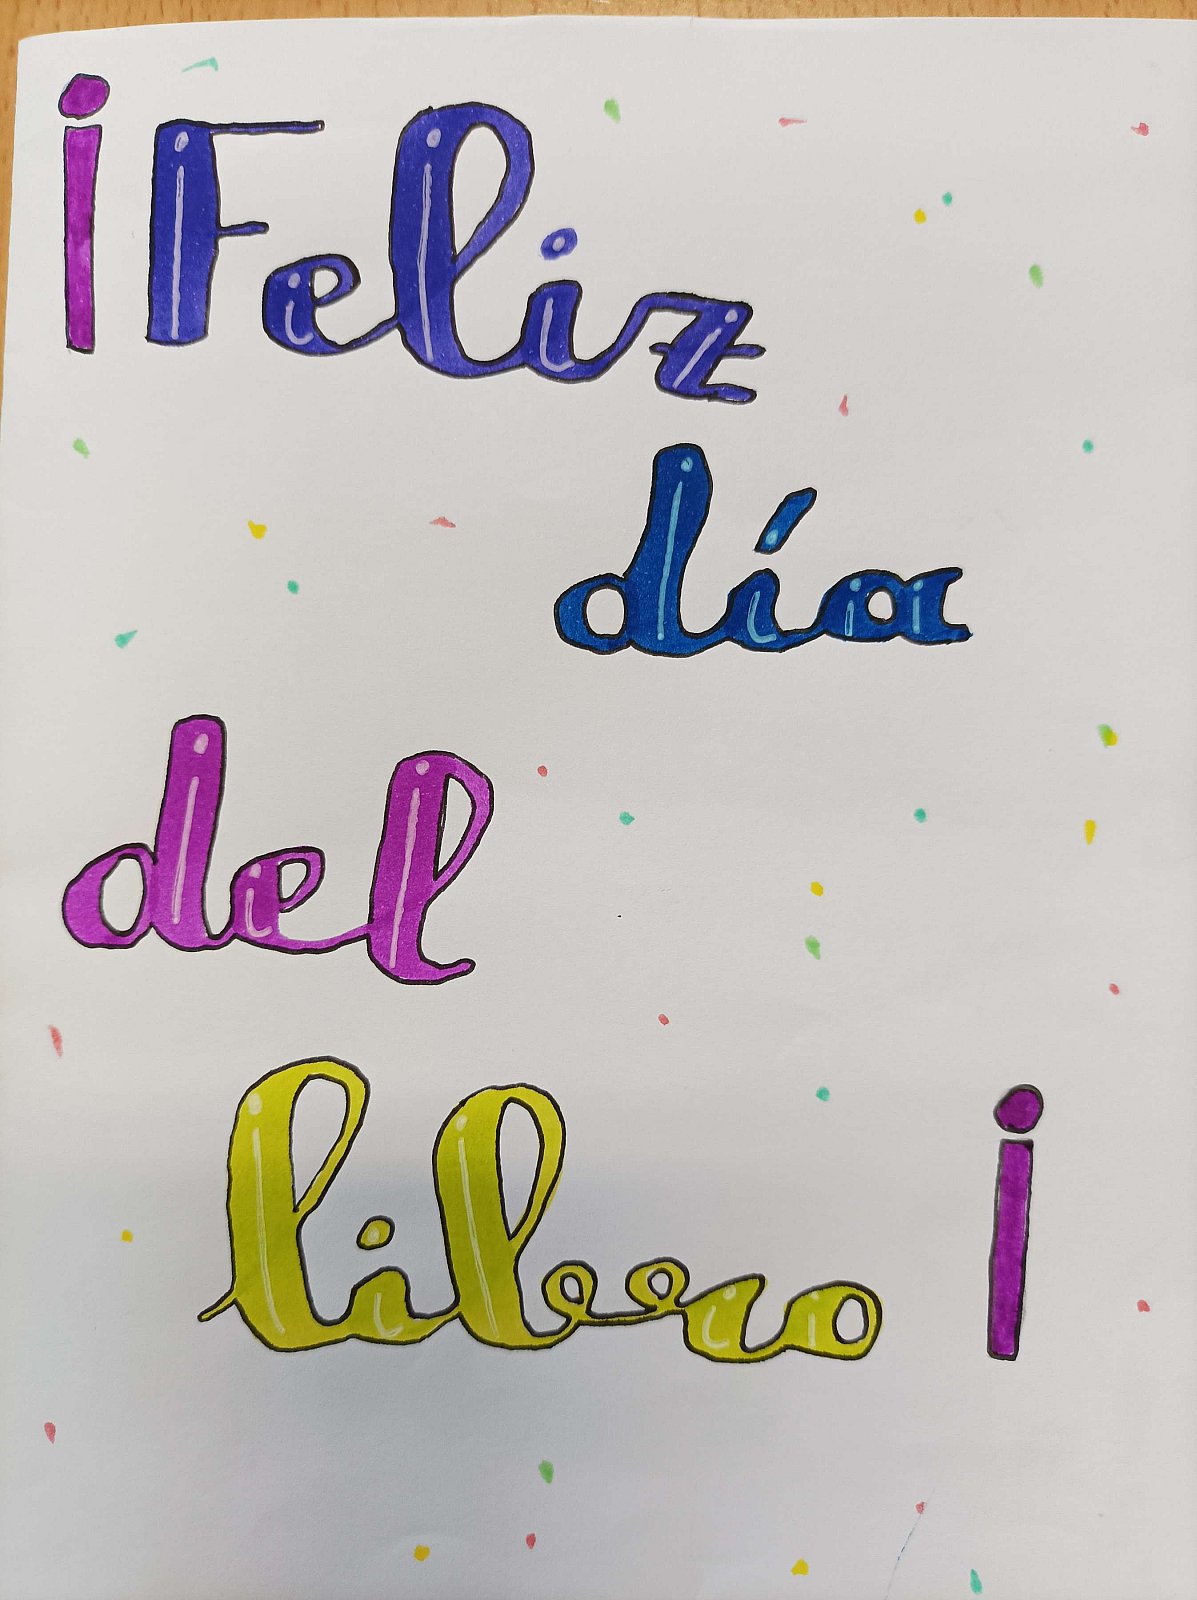 ¡Feliz
día
del
libro ¡